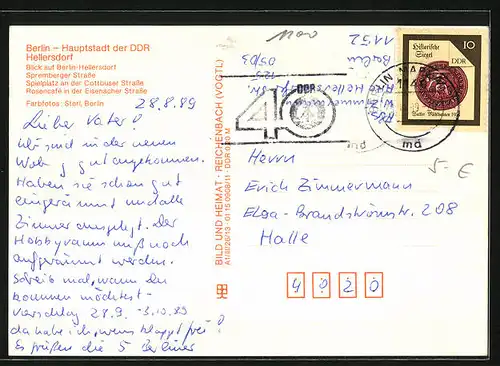 Berlin – Hauptstadt der DDR
Hellersdorf
Blick auf Berlin-Hellersdorf
Spremberger Straße
Spielplatz an der Cottbuser Straße
Rosencafé in der Eisenacher Straße
Farbfotos: Sterl, Berlin
28.8.89
Lieber Vater!
Wir sind in der neuen
Wohng gut angekommen.
Haben sie schon gut
eingeräumt und alle
Zimmer ausgelegt. Der
Hobbyraum muß noch
aufgeräumt werden.
Schreib mal, wann Du
kommen möchtest -
Vorschlag 28.9. - 3.10.89
da habe ich, wenn's klappt frei!
Es grüßen die 5 Berliner
BILD UND HEIMAT · REICHENBACH (VOGTL)
A1/III/26/13 · 01 15 0908/11 · DDR 0,20 M
1152
Berlin
DDR
40
Historische
Siegel
10
DDR
md
md
Herrn
Erich Zimmermann
Elsa-Brandströmstr. 208
Halle
4020
5.- €